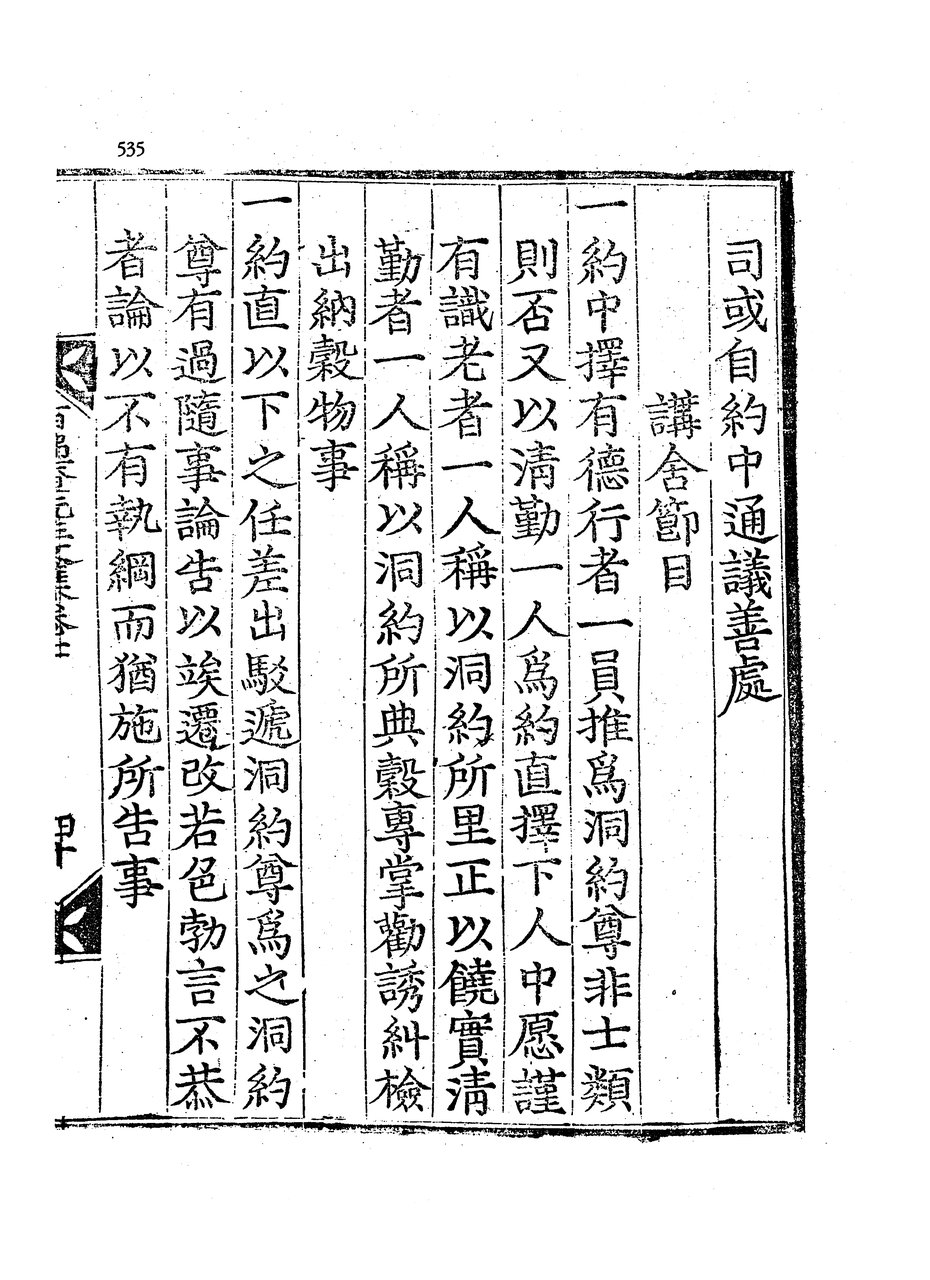 535
司或自約中通議善處
講舍節目
一約中擇有德行者一員推爲洞約尊非士類
則否又以淸勤一人爲約直擇下人中愿謹
有識老者一人稱以洞約所里正以饒實淸
勤者一人稱以洞約所典穀專掌勸誘糾檢
出納穀物事
一約直以下之任差出駁遞洞約尊爲之洞約
尊有過隨事論告以竢遷改若色勃言不恭
者論以不有執綱而猶施所告事